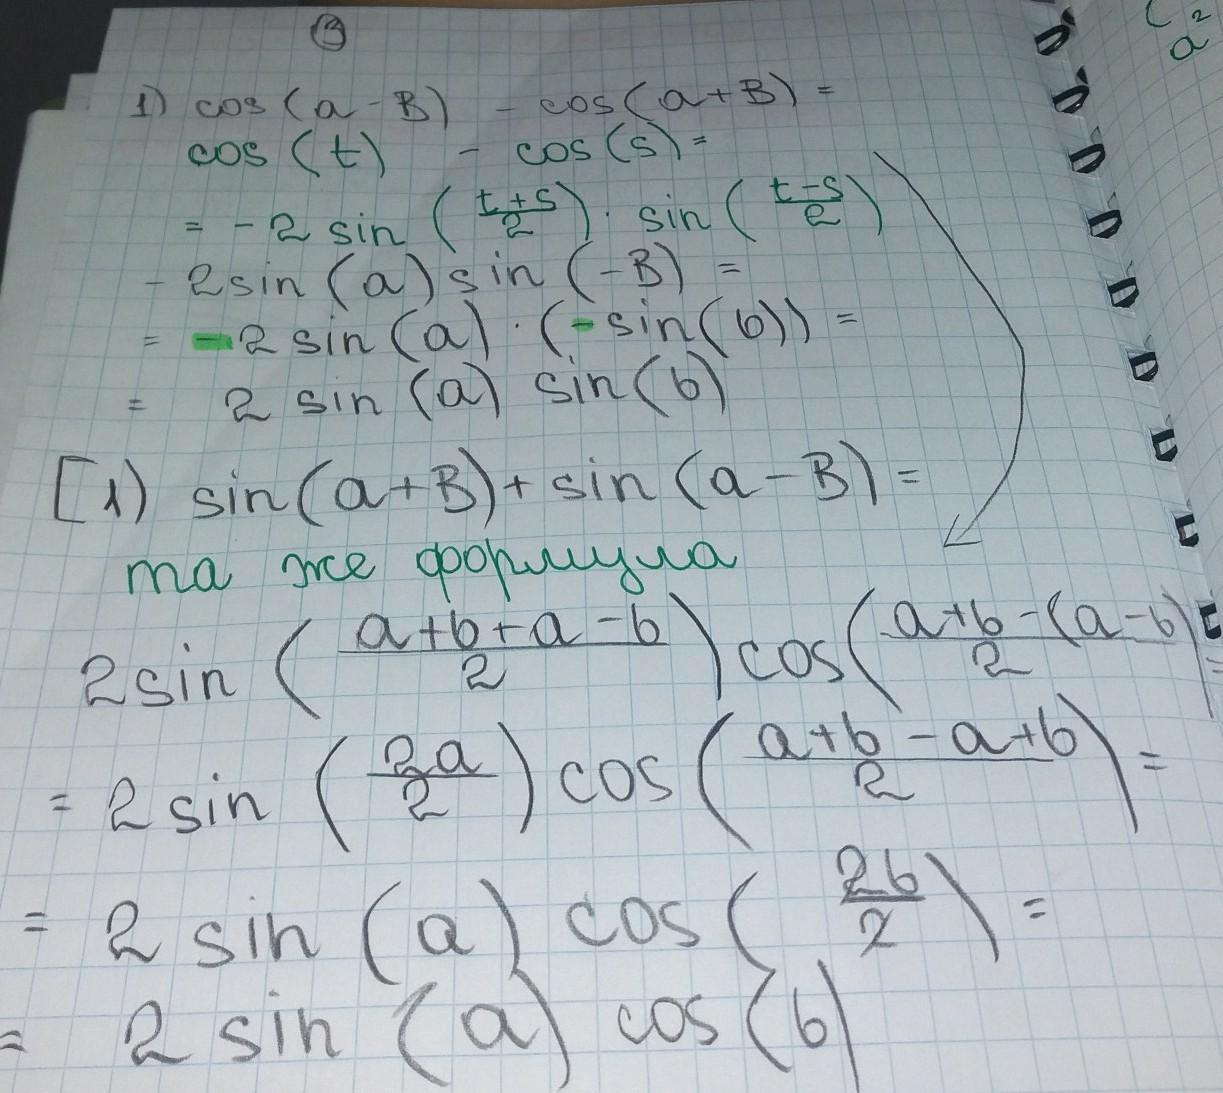 ③
1) cos(a - B) - cos(a+B) =
cos (t) - cos(s) =
= -2 sin (t+s/2) · sin (t-s/2)
- 2sin (a) sin (-B) =
= -2 sin (a) · (- sin(b)) =
= 2 sin (a) sin(b)
[1) sin(a+B) + sin (a-B) =
та же формула
2sin (a+b+a-b/2) cos(a+b-(a-b)/2) =
= 2 sin (2a/2) cos (a+b-a+b/2) =
= 2 sin (a) cos (2b/2) =
= 2 sin (a) cos (b)
a²